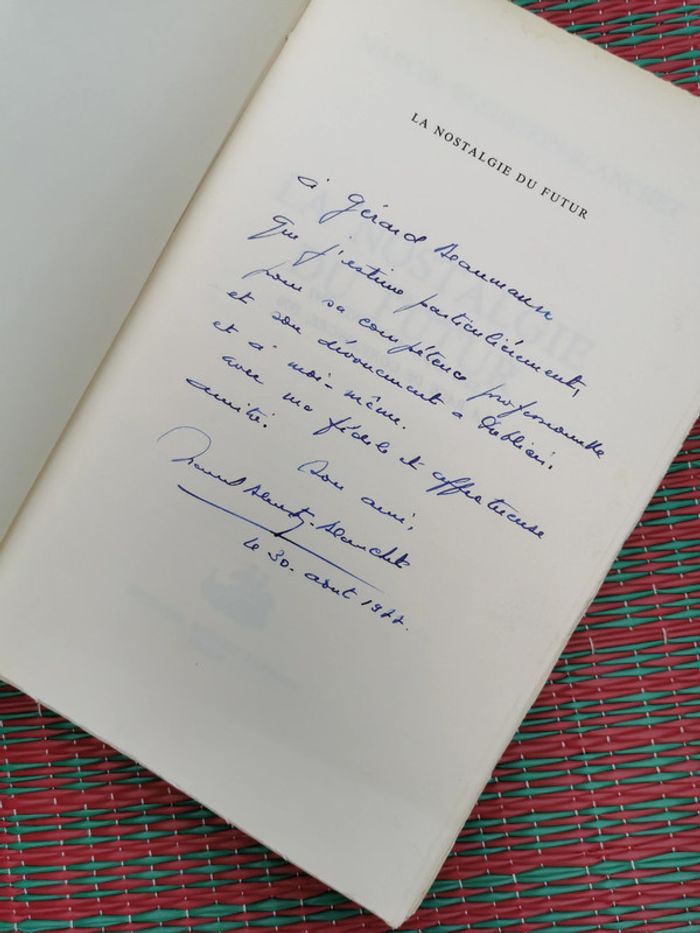 LA NOSTALGIE DU FUTUR
à Gérard Beaumann
que j'estime particulièrement,
pour sa compétence professionnelle
et son dévouement à Publicis,
et à moi-même.
avec ma fidèle et affectueuse
amitié.
Son ami,
Marcel Bleustein-Blanchet
le 30 août 1977.